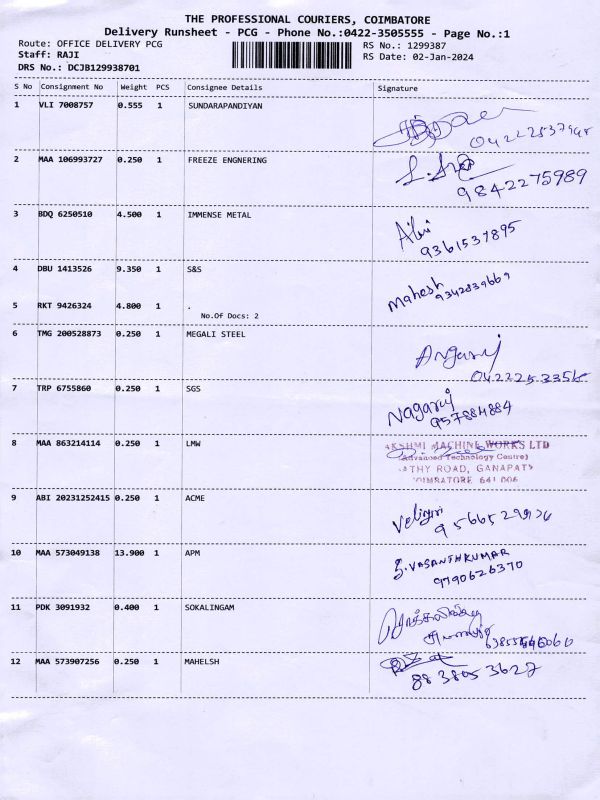 THE PROFESSIONAL COURIERS, COIMBATORE
Delivery Runsheet - PCG - Phone No.:0422-3505555 - Page No.:1
Route: OFFICE DELIVERY PCG
RS No.: 1299387
Staff: RAJI
RS Date: 02-Jan-2024
DRS No.: DCJB129938701
S No Consignment No Weight PCS Consignee Details Signature
1 VLI 7008757 0.555 1 SUNDARAPANDIYAN
2 MAA 106993727 0.250 1 FREEZE ENGNERING
9842275989
3 BDQ 6250510 4.500 1 IMMENSE METAL
9361537895
4 DBU 1413526 9.350 1 S&S
Mahesh
5 RKT 9426324 4.800 1 .
No.Of Docs: 2
6 TMG 200528873 0.250 1 MEGALI STEEL
7 TRP 6755860 0.250 1 SGS
Nagaraj
957884884
8 MAA 863214114 0.250 1 LMW
AKSHMI MACHINE WORKS LTD
(Advanced Technology Centre)
ATHY ROAD, GANAPATY
COIMBATORE 641 006
9 ABI 20231252415 0.250 1 ACME
10 MAA 573049138 13.900 1 APM
S.VASANTHKUMAR
9790626370
11 PDK 3091932 0.400 1 SOKALINGAM
12 MAA 573907256 0.250 1 MAHELSH
88 3805 3627